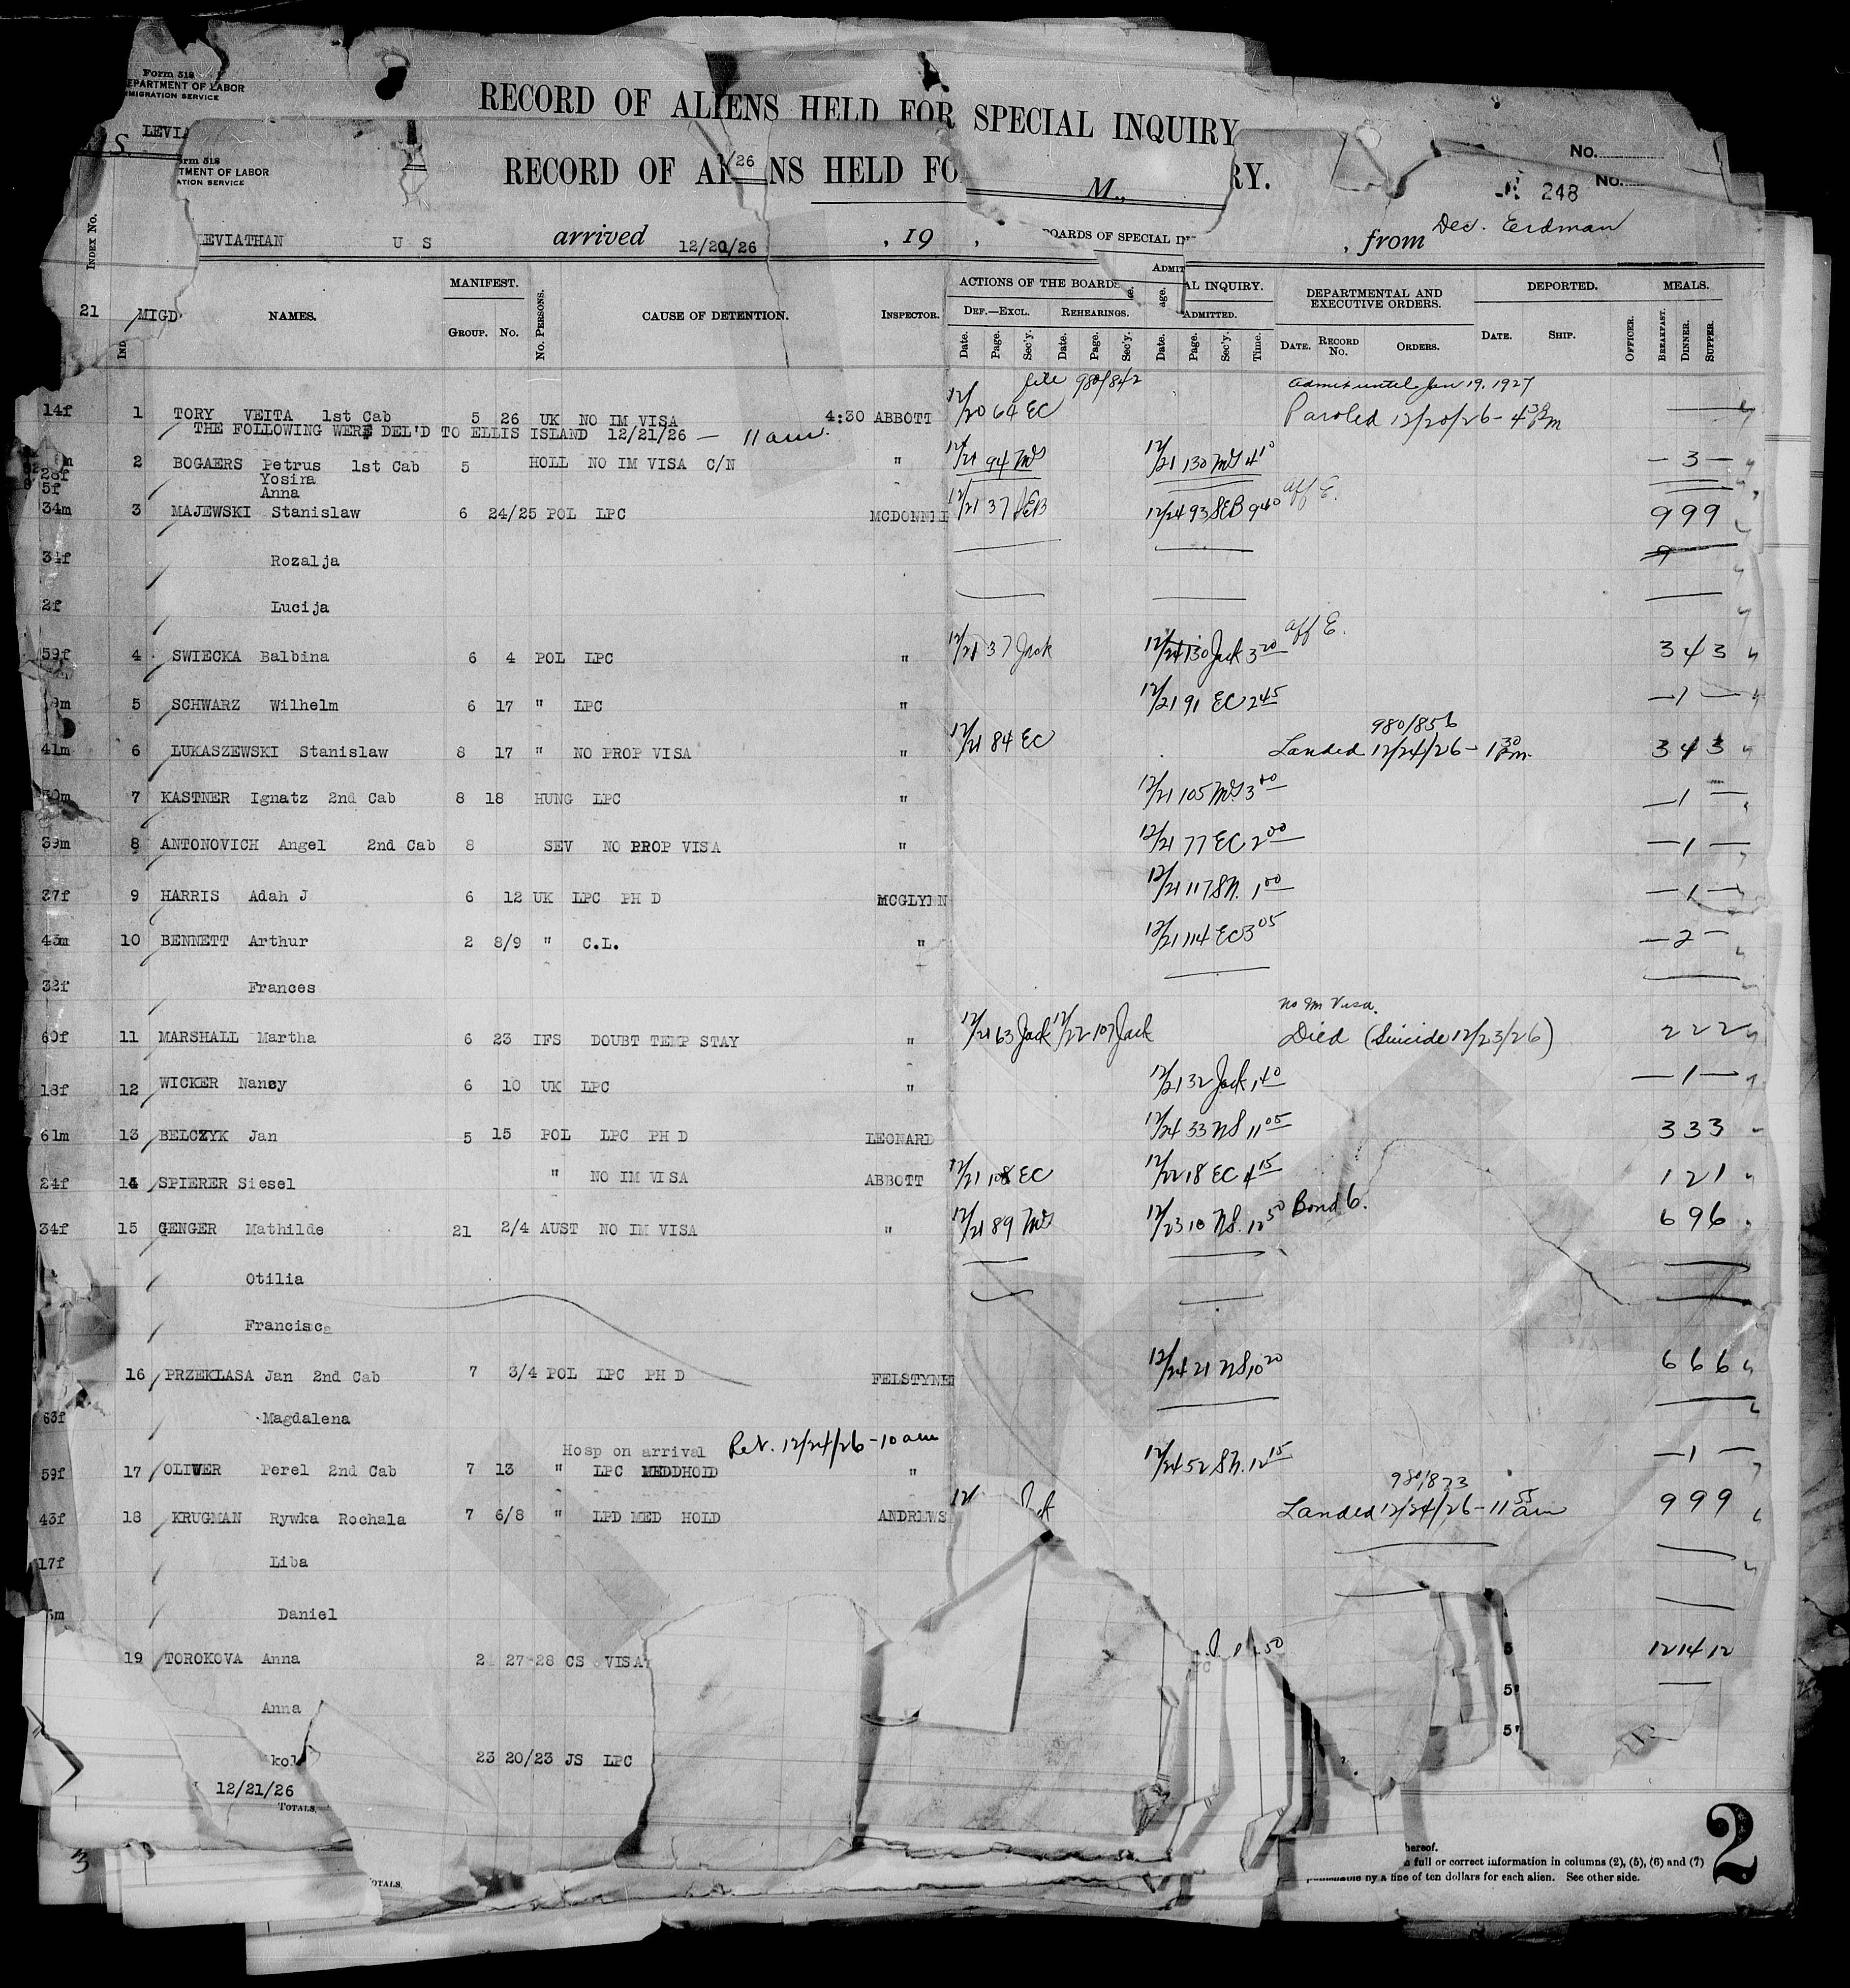 Form 518
DEPARTMENT OF LABOR
IMMIGRATION SERVICE
RECORD OF ALIENS HELD FOR SPECIAL INQUIRY
S. LEVIA
No.
Form 518
TMENT OF LABOR
ATION SERVICE
RECORD OF A 26 NS HELD FO M., RY.
No.
248
LEVIATHAN U S arrived 12/20/26 , 19 , BOARDS OF SPECIAL IN , from Des. Erdman
INDEX No. MANIFEST. ACTIONS OF THE BOARDS AL INQUIRY. DEPARTMENTAL AND EXECUTIVE ORDERS. DEPORTED. MEALS.
21 MIGD NAMES. GROUP. No. No. PERSONS. CAUSE OF DETENTION. INSPECTOR. DEF.—EXCL. REHEARINGS. ADMITTED.
Date. Page. Sec'y. Date. Page. Sec'y. Date. Page. Sec'y. Time. DATE. RECORD No. ORDERS. DATE. SHIP. OFFICER. BREAKFAST. DINNER. SUPPER.
file 980/842 admit until Jan 19, 1927
14f 1 TORY VEITA 1st Cab 5 26 UK NO IM VISA 4:30 ABBOTT 12/20 64 EC Paroled 12/20/26 - 4 30 Pm
THE FOLLOWING WERE DEL'D TO ELLIS ISLAND 12/21/26 — 11 am.
2 BOGAERS Petrus 1st Cab 5 HOLL NO IM VISA C/N " 12/21 94 MS 12/21 130 MS 4 10 — 3 —
28f Yosina
5f Anna
34m 3 MAJEWSKI Stanislaw 6 24/25 POL LPC MCDONNEL 12/21 37 SEB 12/24 93 SEB 9 40 aff E. 9 9 9
34f Rozalja
2f Lucija
59f 4 SWIECKA Balbina 6 4 POL LPC " 12/21 37 Jack 12/24 130 Jack 3 20 aff E. 3 4 3
5 SCHWARZ Wilhelm 6 17 " LPC " 12/21 91 EC 2 45 — 1 —
980/856
41m 6 LUKASZEWSKI Stanislaw 8 17 " NO PROP VISA " 12/21 84 EC Landed 12/24/26 - 1 30 Pm. 3 4 3
30m 7 KASTNER Ignatz 2nd Cab 8 18 HUNG LPC " 12/21 105 MS 3 40 — 1 —
39m 8 ANTONOVICH Angel 2nd Cab 8 SEV NO PROP VISA " 12/21 77 EC 2 00 — 1 —
37f 9 HARRIS Adah J 6 12 UK LPC PH D MCGLYNN 12/21 117 SN. 1 00 — 1 —
43m 10 BENNETT Arthur 2 8/9 " C.L. " 12/21 114 EC 3 05 — 2 —
32f Frances
No Im Visa.
60f 11 MARSHALL Martha 6 23 IFS DOUBT TEMP STAY " 12/21 63 Jack 12/22 107 Jack Died (Suicide 12/23/26) 2 2 2
18f 12 WICKER Nancy 6 10 UK LPC " 12/21 32 Jack 1 40 — 1 —
61m 13 BELCZYK Jan 5 15 POL LPC PH D LEONARD 12/24 33 NS 11 05 3 3 3
24f 14 SPIERER Siesel " NO IM VISA ABBOTT 12/21 108 EC 12/22 18 EC 4 15 1 2 1
34f 15 GENGER Mathilde 21 2/4 AUST NO IM VISA " 12/21 89 MS 12/23 10 NS. 12 50 Bond 6. 6 9 6
Otilia
Francisca
16 PRZEKLASA Jan 2nd Cab 7 3/4 POL LPC PH D FELSTYNER 12/24 21 NS 10 20 6 6 6
63f Magdalena
Hosp on arrival Ret. 12/24/26 - 10 am
59f 17 OLIVER Perel 2nd Cab 7 13 " LPC MEDDHOLD " 12/24 52 SN. 12 15 — 1 —
980/873
43f 18 KRUGMAN Rywka Rochala 7 6/8 " LPD MED HOLD ANDREWS 12/ Landed 12/24/26 - 11 55 am 9 9 9
17f Liba
Daniel
19 TOROKOVA Anna 2 27-28 CS VISA 50 5 12 14 12
Anna 5
5
kol 23 20/23 JS LPC
12/21/26
TOTALS,
3
hereof.
full or correct information in columns (2), (5), (6) and (7)
by a fine of ten dollars for each alien. See other side.
OTALS,
2